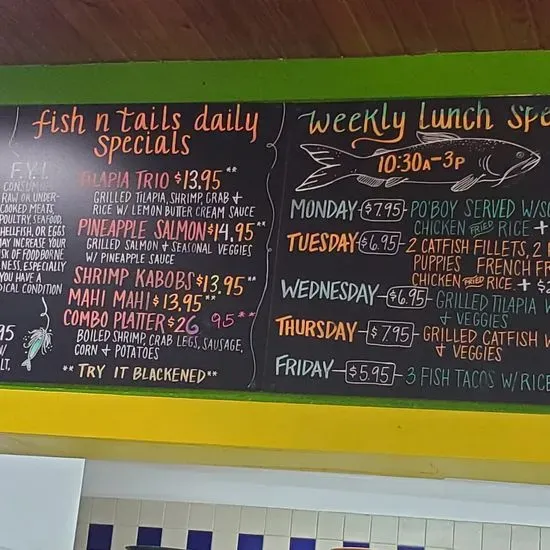 F.Y.I.
RAW OR UNDER-
COOKED MEATS,
POULTRY, SEAFOOD,
SHELLFISH, OR EGGS
MAY INCREASE YOUR
RISK OF FOODBORNE
ILLNESS, ESPECIALLY
YOU HAVE A
CONDITION
fish n tails daily
specials
TILAPIA TRIO $13.95**
GRILLED TILAPIA, SHRIMP, CRAB +
RICE W/ LEMON BUTTER CREAM SAUCE
PINEAPPLE SALMON $14.95**
GRILLED SALMON & SEASONAL VEGGIES
W/ PINEAPPLE SAUCE
SHRIMP KABOBS $13.95**
MAHI MAHI $13.95**
COMBO PLATTER $26 95**
BOILED SHRIMP, CRAB LEGS, SAUSAGE,
CORN & POTATOES
** TRY IT BLACKENED**
weekly lunch spe
10:30A-3P
MONDAY $7.95 PO'BOY SERVED W/
CHICKEN FRIED RICE +
TUESDAY $6.95 2 CATFISH FILLETS, 2
PUPPIES FRENCH FR
CHICKEN FRIED RICE + $
WEDNESDAY $6.95 GRILLED TILAPIA W
& VEGGIES
THURSDAY $7.95 GRILLED CATFISH W
& VEGGIES
FRIDAY $5.95 3 FISH TACOS W/ RICE